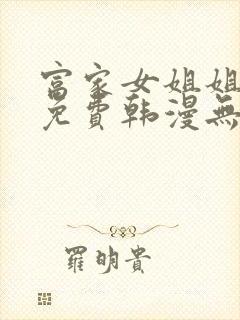 富家女姐姐
免費韩漫無
羅明貴